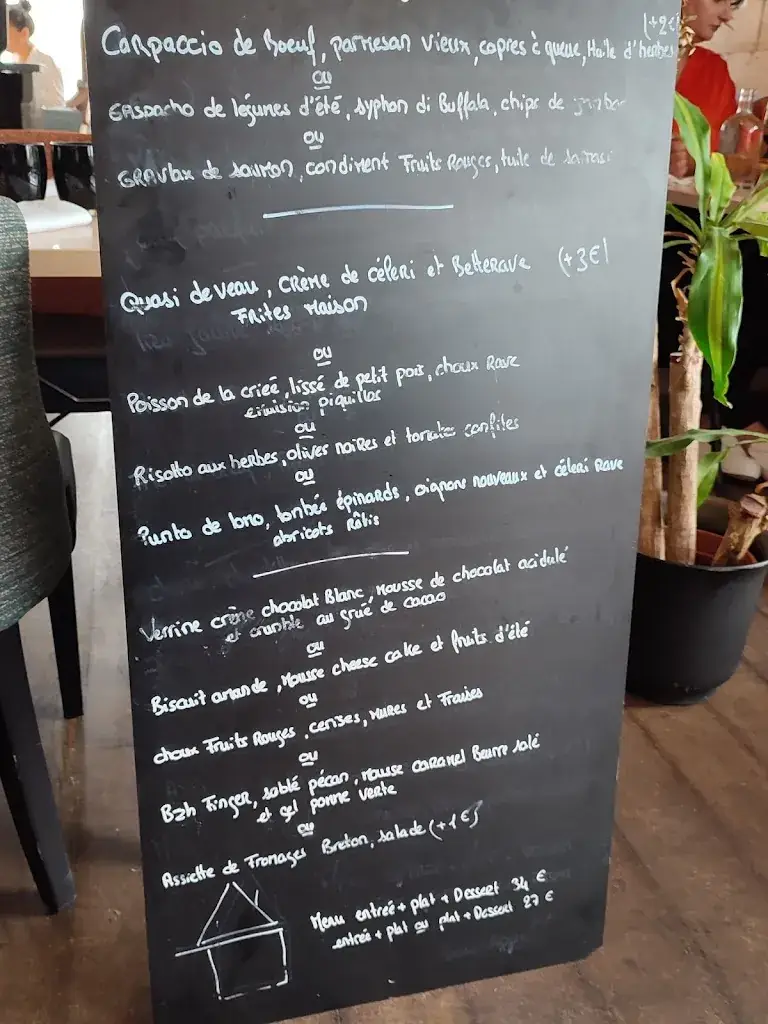 (+2€)
Carpaccio de Boeuf, parmesan vieux, capres à queue, Huile d'herbes
ou
Gaspacho de légumes d'été, syphon di Buffala, chips de
ou
Gravlax de saumon, condiment Fruits Rouges, tuile de
Quasi de veau, crème de céleri et Betterave (+3€)
Frites Maison
ou
Poisson de la crieé, lissé de petit pois, choux Rave
émulsion piquillos
ou
Risotto aux herbes, olives noires et tomates confites
ou
de tombée épinards, oignons nouveaux et céleri rave
abricots Rôtis
Verrine crème chocolat Blanc, Mousse de chocolat acidulé
et crumble au grué de cacao
ou
Biscuit amande, Mousse cheese cake et fruits d'été
ou
choux Fruits Rouges, cerises, Mures et Fraises
ou
Bzh Finger, sablé pécan, mousse caramel Beurre salé
et gel pomme verte
ou
Assiette de Fromages Breton, salade (+1€)
Menu entreé + plat + Dessert 34 €
entreé + plat ou plat + Dessert 27 €